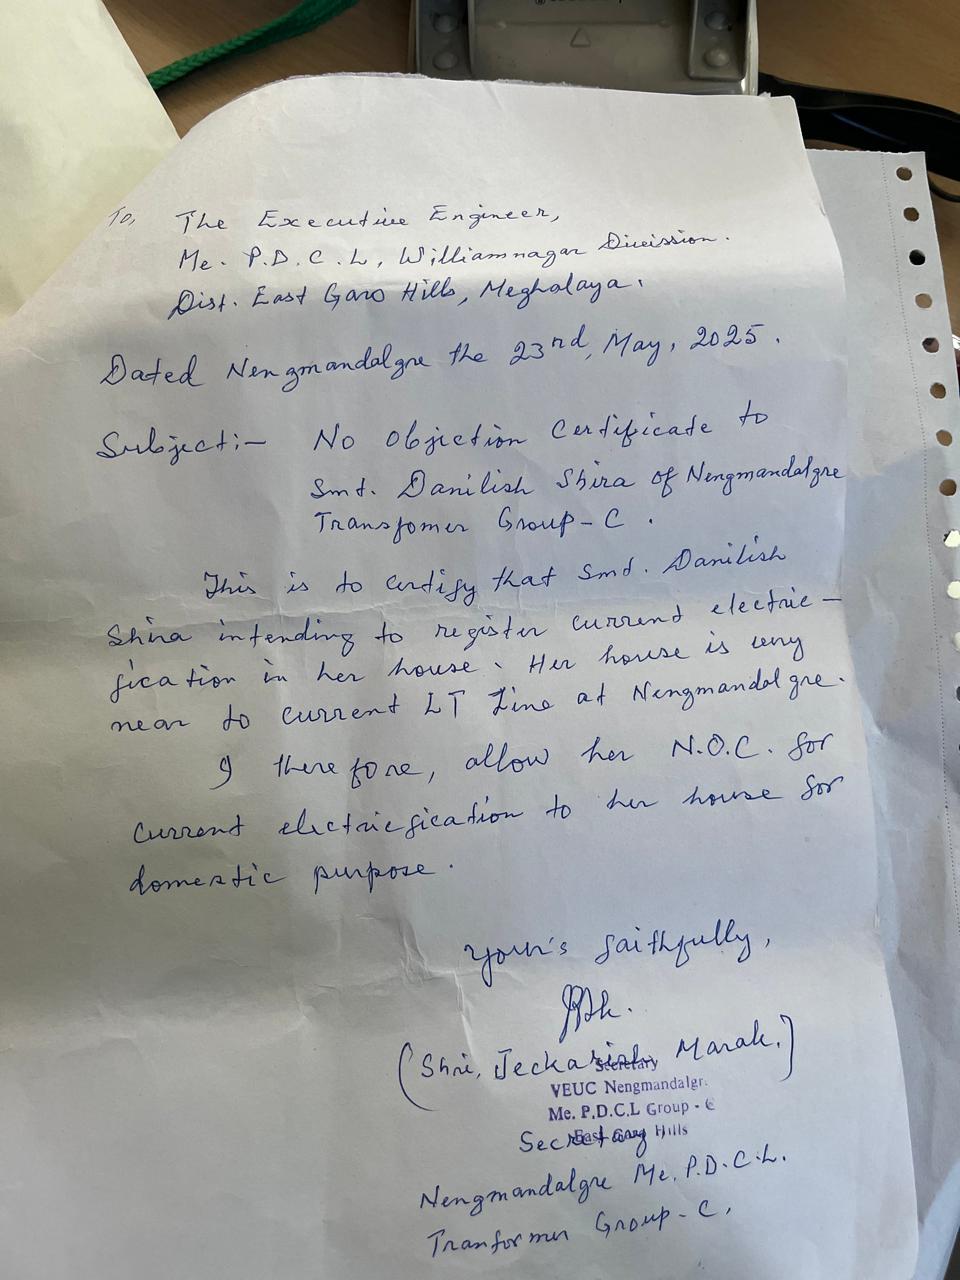 To,
The Executive Engineer,
Me. P.D.C.L, Williamnagar Division.
Dist. East Garo Hills, Meghalaya.
Dated Nengmandalgre the 23rd, May, 2025.
Subject:- No Objiction Certificate to
Smt. Danilish Shira of Nengmandalgre
Transfomer Group-C.
This is to certify that Smt. Danilish
Shira intending to register current electric-
fication in her house. Her house is very
near to current LT Line at Nengmandalgre.
I therefore, allow her N.O.C. for
current electricfication to her house for
domestic purpose.
Your's faithfully,
(Shri, Jeckariah Marak,)
Secretary
VEUC Nengmandalgr.
Me. P.D.C.L Group - C
East Garo Hills
Secretary
Nengmandalgre Me. P.D.C.L.
Tranformer Group-C,